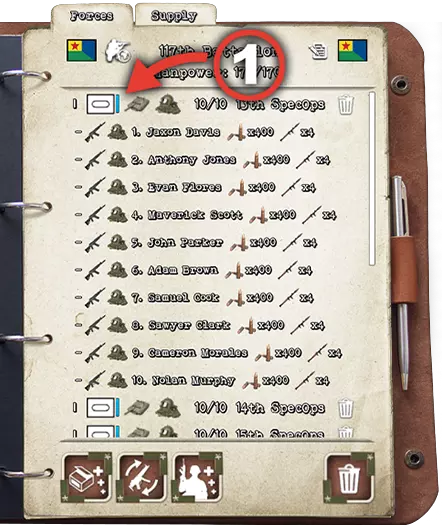 Forces Supply
117th Battalion
Manpower:
1
I 10/10 13th SpecOps
- 1. Jaxon Davis x400 x4
- 2. Anthony Jones x400 x4
- 3. Evan Flores x400 x4
- 4. Maverick Scott x400 x4
- 5. John Parker x400 x4
- 6. Adam Brown x400 x4
- 7. Samuel Cook x400 x4
- 8. Sawyer Clark x400 x4
- 9. Cameron Morales x400 x4
- 10. Nolan Murphy x400 x4
I 10/10 14th SpecOps
I 10/10 15th SpecOps